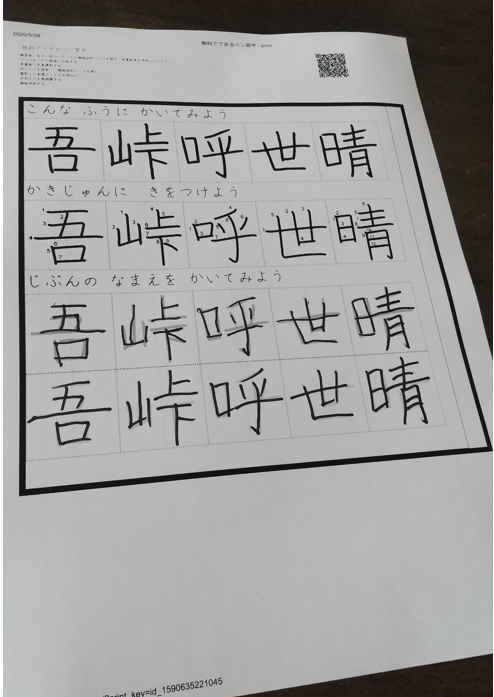 2020/5/28
無料でできるペン習字 - print
こんな ふうに かいてみよう
吾峠呼世晴
かきじゅんに きをつけよう
吾峠呼世晴
じぶんの なまえを かいてみよう
吾峠呼世晴
吾峠呼世晴
Print_key=id_1590635221045